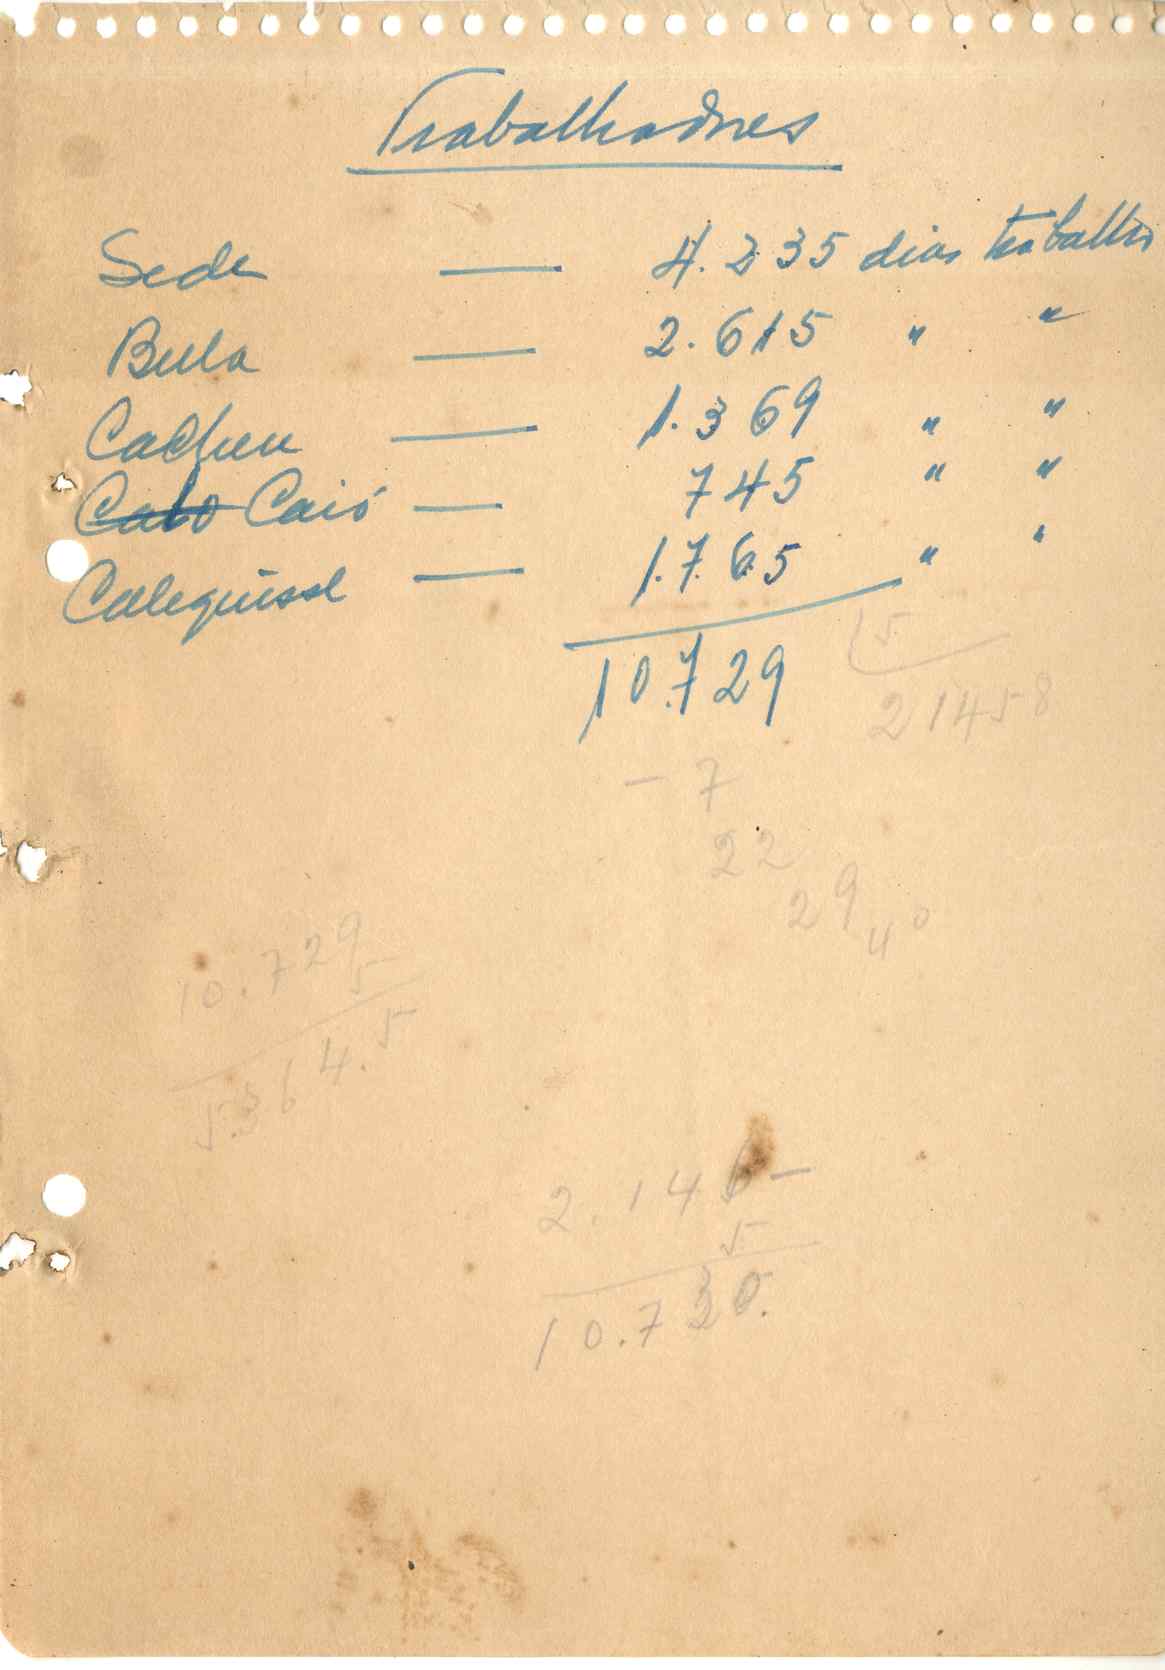 Trabalhadores
Sede — 4.235 dias trabalho
Bula — 2.615 " "
Cacheu — 1.369 " "
Cabo Caió — 745 " "
Calequisse — 1.765 " "
10.729
5
21458
- 7
22
29
40
10.729
5
5.364.5
2.146-
5
10.730.